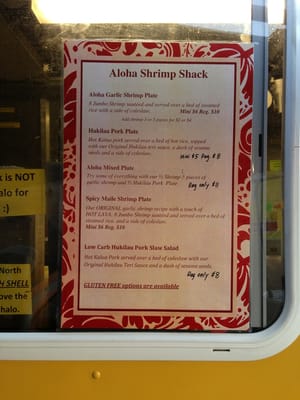 Aloha Shrimp Shack
Aloha Garlic Shrimp Plate
6 Jumbo Shrimp sauteed and served over a bed of steamed
rice with a side of coleslaw. Mini $6 Reg. $10
Add shrimp 3 or 5 pieces for $2 or $4
Hukilau Pork Plate
Hot Kalua pork served over a bed of hot rice, topped
with our Original Hukilau teri sauce, a dash of sesame
seeds and a side of coleslaw.
Mini $5 Reg. $8
Aloha Mixed Plate
Try some of everything with our ½ Shrimp 5 pieces of
garlic shrimp and ½ Hukilau Pork Plate
Reg only $8
Spicy Maile Shrimp Plate
Our ORIGINAL garlic shrimp recipe with a touch of
HOT LAVA. 9 Jumbo Shrimp sauteed and served over a bed of
steamed rice, and a side of coleslaw.
Mini $6 Reg $10
Low Carb Hukilau Pork Slaw Salad
Hot Kalua Pork served over a bed of coleslaw with our
Original Hukilau Teri Sauce and a dash of sesame seeds.
Reg only $8
GLUTEN FREE options are available
k is NOT
alo for
:)
North
H SHELL
ove the
halo.